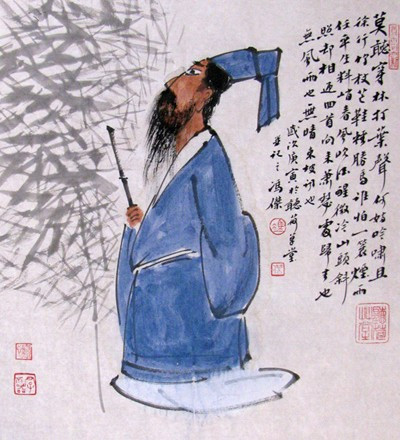 莫聽穿林打葉聲何妨吟嘯且
徐行竹杖芒鞋輕勝馬誰怕一蓑煙雨
任平生料峭春風吹酒醒微冷山頭斜
照却相迎回首向来蕭瑟處歸去也
無風雨也無晴東坡詞也
歲次庚寅於聽荷草堂
並記之馮傑